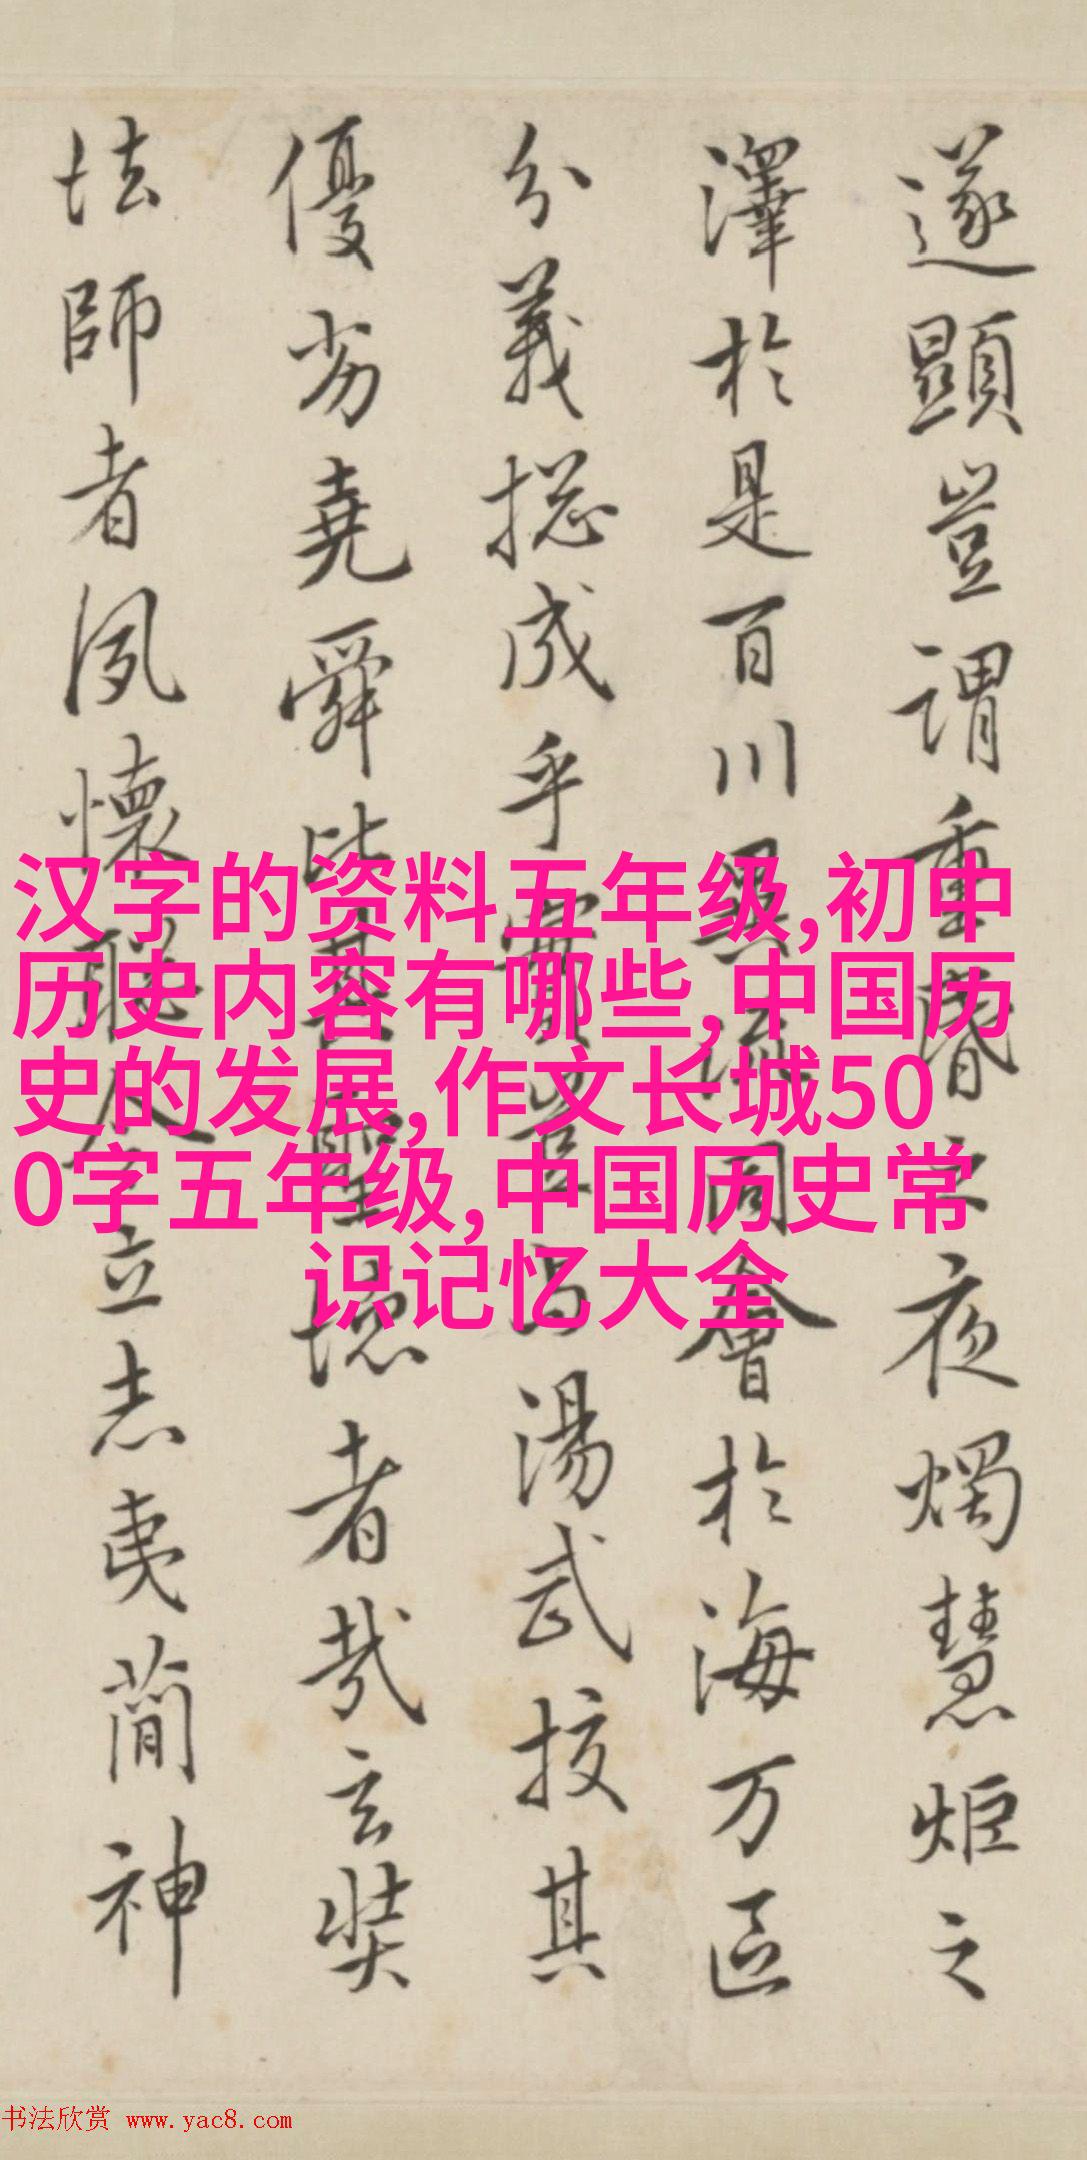 遂顯豈謂重昏之夜燭慧炬之
澤於是百川異流同會於海万區
分義揔成乎實豈与湯武挍其
優劣堯舜比其聖德者哉玄奘
法師者夙懷聡令立志夷簡神
汉字的资料五年级,初中
历史内容有哪些,中国历
史的发展,作文长城50
0字五年级,中国历史常
识记忆大全
书法欣赏 www.yac8.com